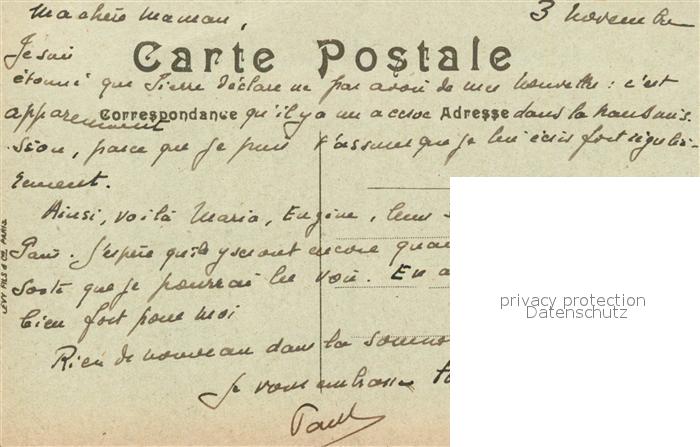 Ma chère Maman, 3 Novembre
Je suis
Carte Postale
étonné que Pierre déclare ne pas avoir de mes nouvelles : c'est
apparemment qu'il y a un accroc dans la transmis-
Correspondance Adresse
sion, parce que je puis t'assurer que je lui écris fort réguliè-
rement.
Ainsi, voilà Maria, Eugène, leurs
Paris. J'espère qu'ils y seront encore quan
sorte que je pourrai les voir. En a
bien fort pour moi
Rien de nouveau dans la Somme
Je vous embrasse
Paul
LEVY FILS & CIE, PARIS
privacy protection
Datenschutz